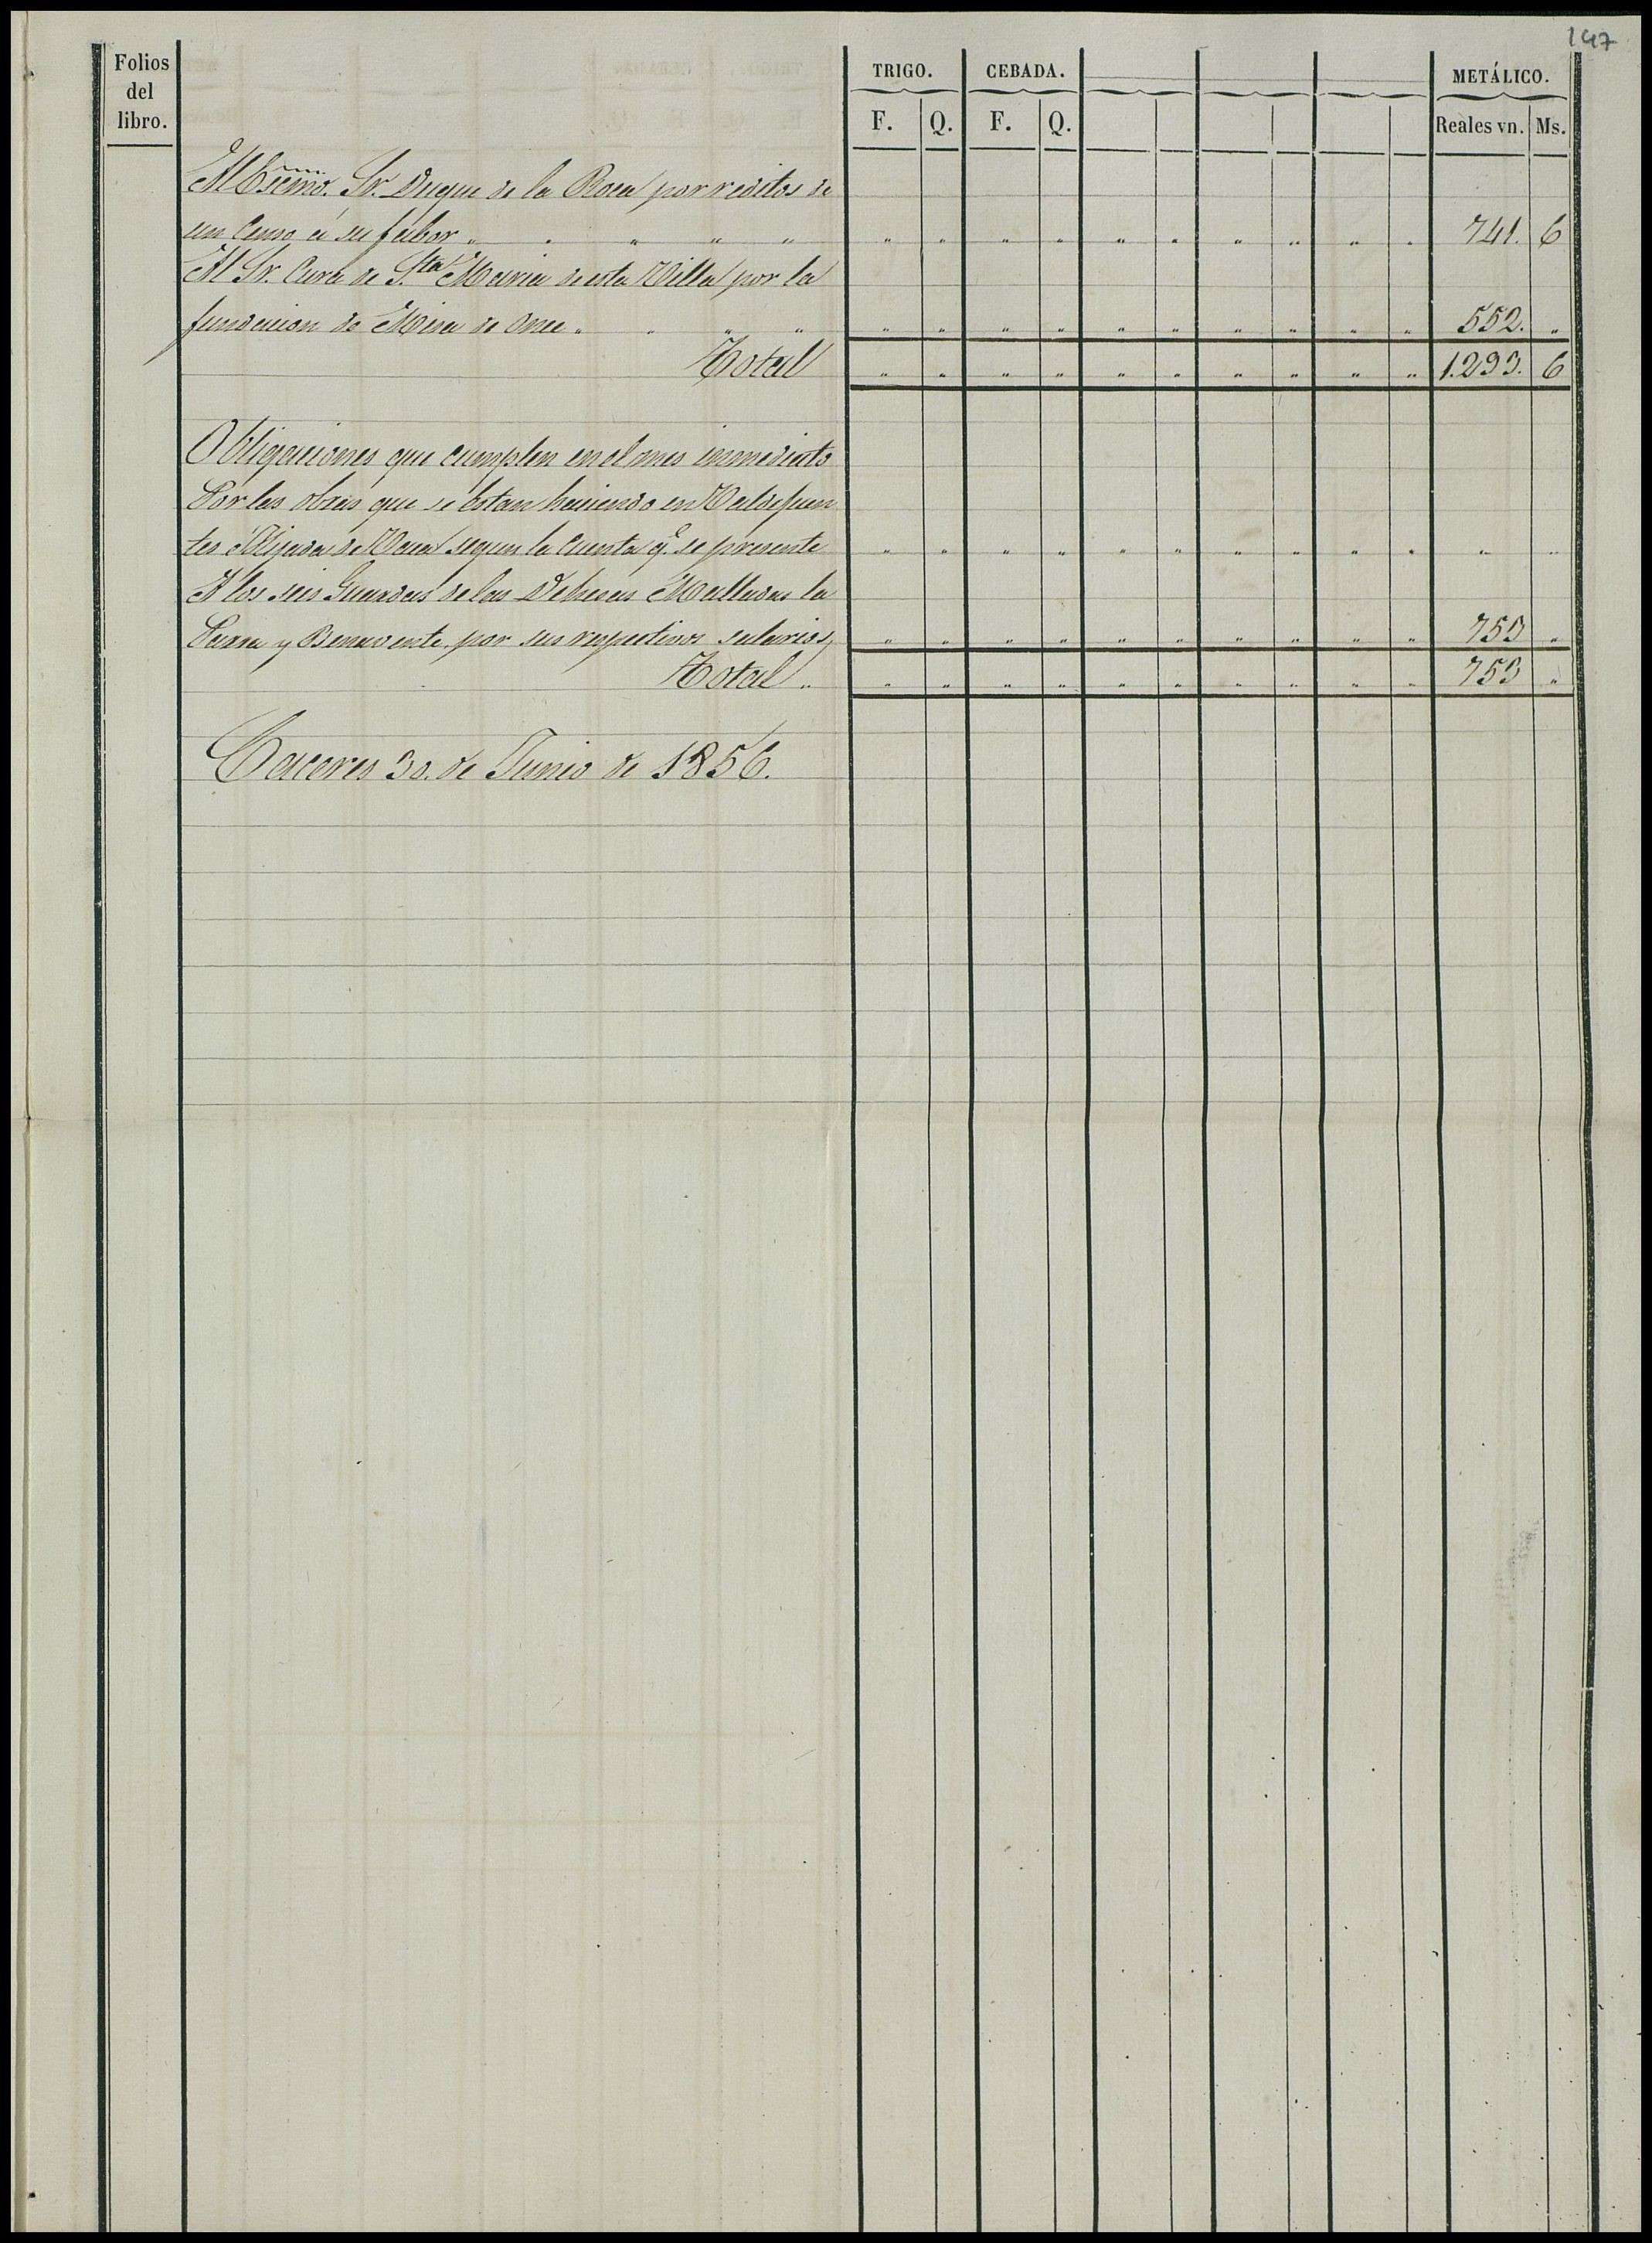 147
Folios del libro.
TRIGO. CEBADA. METÁLICO.
F. Q. F. Q. Reales vn. Ms.
Al Escmo. Sr. Duque de la Roca por reditos de
un Censo á su fabor " " " " " " " " " " " " " " " 741. 6
Al Sr. Cura de S.ta Maria de esta Villa por la
fundacion de Misa de Once " " " " " " " " " " " " " " 552. "
Total " " " " " " " " " " 1.293. 6
Obligaciones que cumplen en el mes inmediato
Por las obras que se estan haciendo en Valdefuen
tes é Hijada de Vaca segun la Cuenta q.e se presente " " " " " " " " " " " "
A los seis Guardas de las Dehesas Malladas la
Parra y Benavente por sus respectivos salarios " " " " " " " " " " 753 "
Total " " " " " " " " " " " 753 "
Caceres 30. de Junio de 1856.